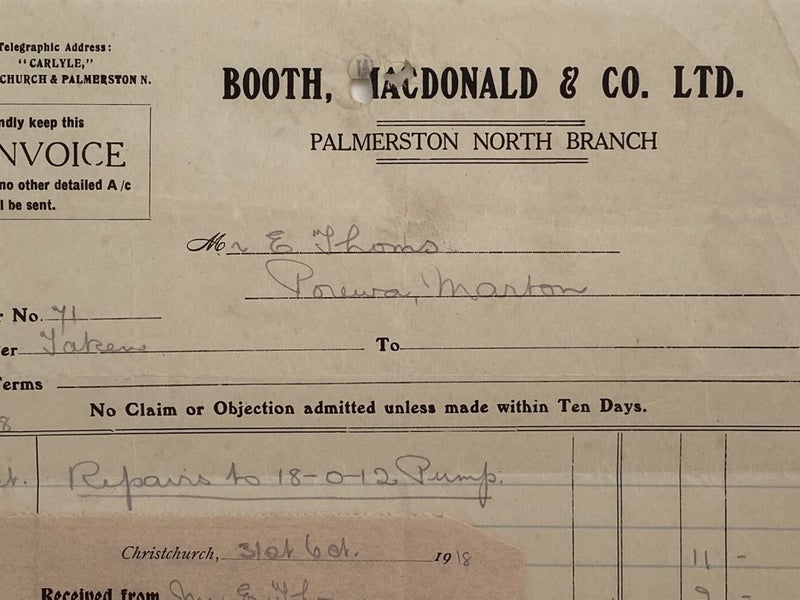 Telegraphic Address:
"CARLYLE,"
CHURCH & PALMERSTON N.
BOOTH, MACDONALD & CO. LTD.
PALMERSTON NORTH BRANCH
ndly keep this
NVOICE
no other detailed A/c
l be sent.
Mr E Thoms
Porewa, Marton
r No. 71
er Taken To
Terms
No Claim or Objection admitted unless made within Ten Days.
8
t. Repairs to 18-0-12 Pump.
Christchurch, 31st Oct. 1918
11 -
Received from Mr E Th
9 -